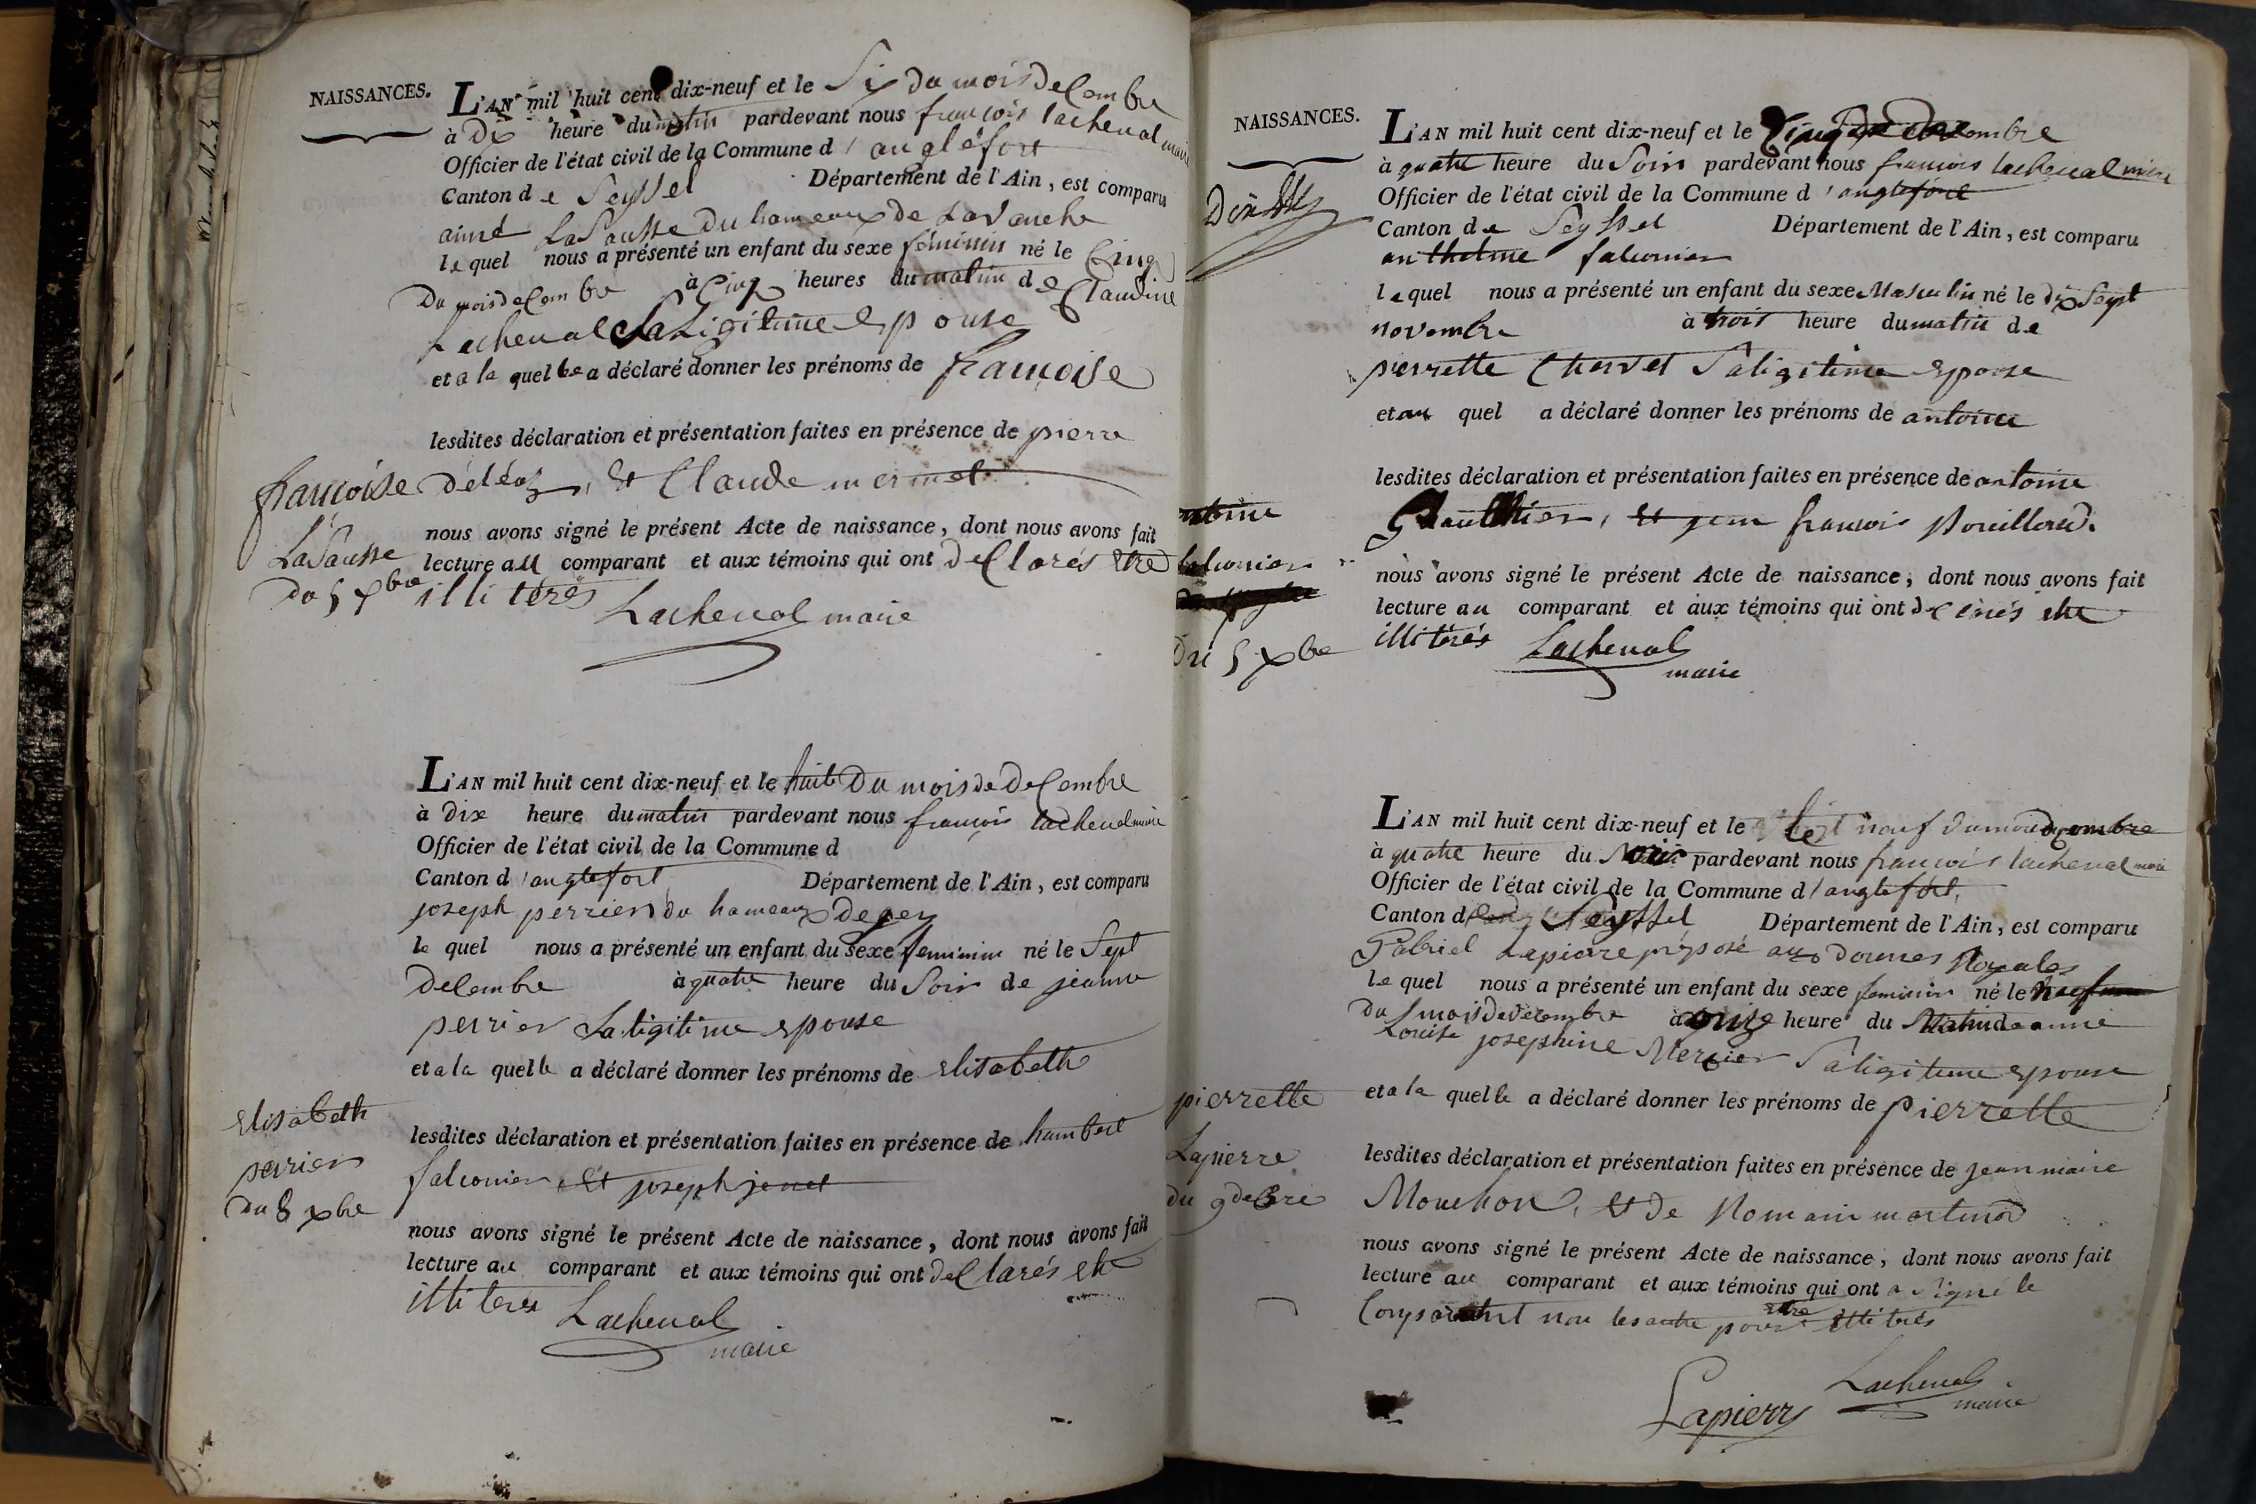 NAISSANCES.
L'AN mil huit cent dix-neuf et le Six du mois decembre
à Dix heure du matin pardevant nous françois lachenal maire
Officier de l'état civil de la Commune d'angléfort
Canton de Seyssel Département de l'Ain, est comparu
aimé LaSausse Du hameaux de Lavanche
le quel nous a présenté un enfant du sexe féminin né le Cinq
Du mois decembre à Cinq heures du matin de Claudine
Lachenal Sa Ligitime Epouse
et a la quelle a déclaré donner les prénoms de françoise
lesdites déclaration et présentation faites en présence de pierre
déléaz, et Claude mermet
nous avons signé le présent Acte de naissance, dont nous avons fait
lecture au comparant et aux témoins qui ont declarés Etre
illiterés
Lachenal maire
françoise
LaSausse
Du 5 xbre
L'AN mil huit cent dix-neuf et le huit Du mois de Decembre
à Dix heure du matin pardevant nous françois lachenal maire
Officier de l'état civil de la Commune d
Canton d'anglefort Département de l'Ain, est comparu
joseph perrier du hameaux de
le quel nous a présenté un enfant du sexe feminin né le Sept
Decembre à quatre heure du Soir de jeanne
perrier Sa ligitime epouse
et a la quelle a déclaré donner les prénoms de Elisabeth
lesdites déclaration et présentation faites en présence de humbert
falconier, Et joseph jenet
nous avons signé le présent Acte de naissance, dont nous avons fait
lecture au comparant et aux témoins qui ont declarés etre
illiteres
Lachenal
maire
Elisabeth
perrier
Du 8 xbre
NAISSANCES.
L'AN mil huit cent dix-neuf et le Cinq decembre
à quatre heure du Soir pardevant nous francois lachenal maire
Officier de l'état civil de la Commune d'anglefort
Canton de Seyssel Département de l'Ain, est comparu
anthelme falconier
le quel nous a présenté un enfant du sexe Masculin né le dix Sept
novembre à trois heure du matin de
pierrette Chervet Sa ligitime Epouse
et au quel a déclaré donner les prénoms de antoine
lesdites déclaration et présentation faites en présence de antoine
Gauthier, et jean francois Pouilloud.
nous avons signé le présent Acte de naissance, dont nous avons fait
lecture au comparant et aux témoins qui ont etre
illitérés
Lachenal
maire
antoine
falconier
Du 5 xbre
L'AN mil huit cent dix-neuf et le neuf du mois decembre
à quatre heure du pardevant nous francois lachenal maire
Officier de l'état civil de la Commune d'anglefort,
Canton d Seyssel Département de l'Ain, est comparu
Gabriel Lapierre préposé aux Dounes Royales
le quel nous a présenté un enfant du sexe feminin né le neuf
du mois de decembre à onze heure du Matin de anne
Louise josephine Mercier Sa ligitime epouse
et a la quelle a déclaré donner les prénoms de pierrette
lesdites déclaration et présentation faites en présence de jean marie
Mouchon, et de Romain martinod
nous avons signé le présent Acte de naissance, dont nous avons fait
lecture au comparant et aux témoins qui ont a Signé le
Comparant non les autre pour etre illitrés
Lapierre
Lachenal
maire
pierrette
Lapierre
du 9 debre